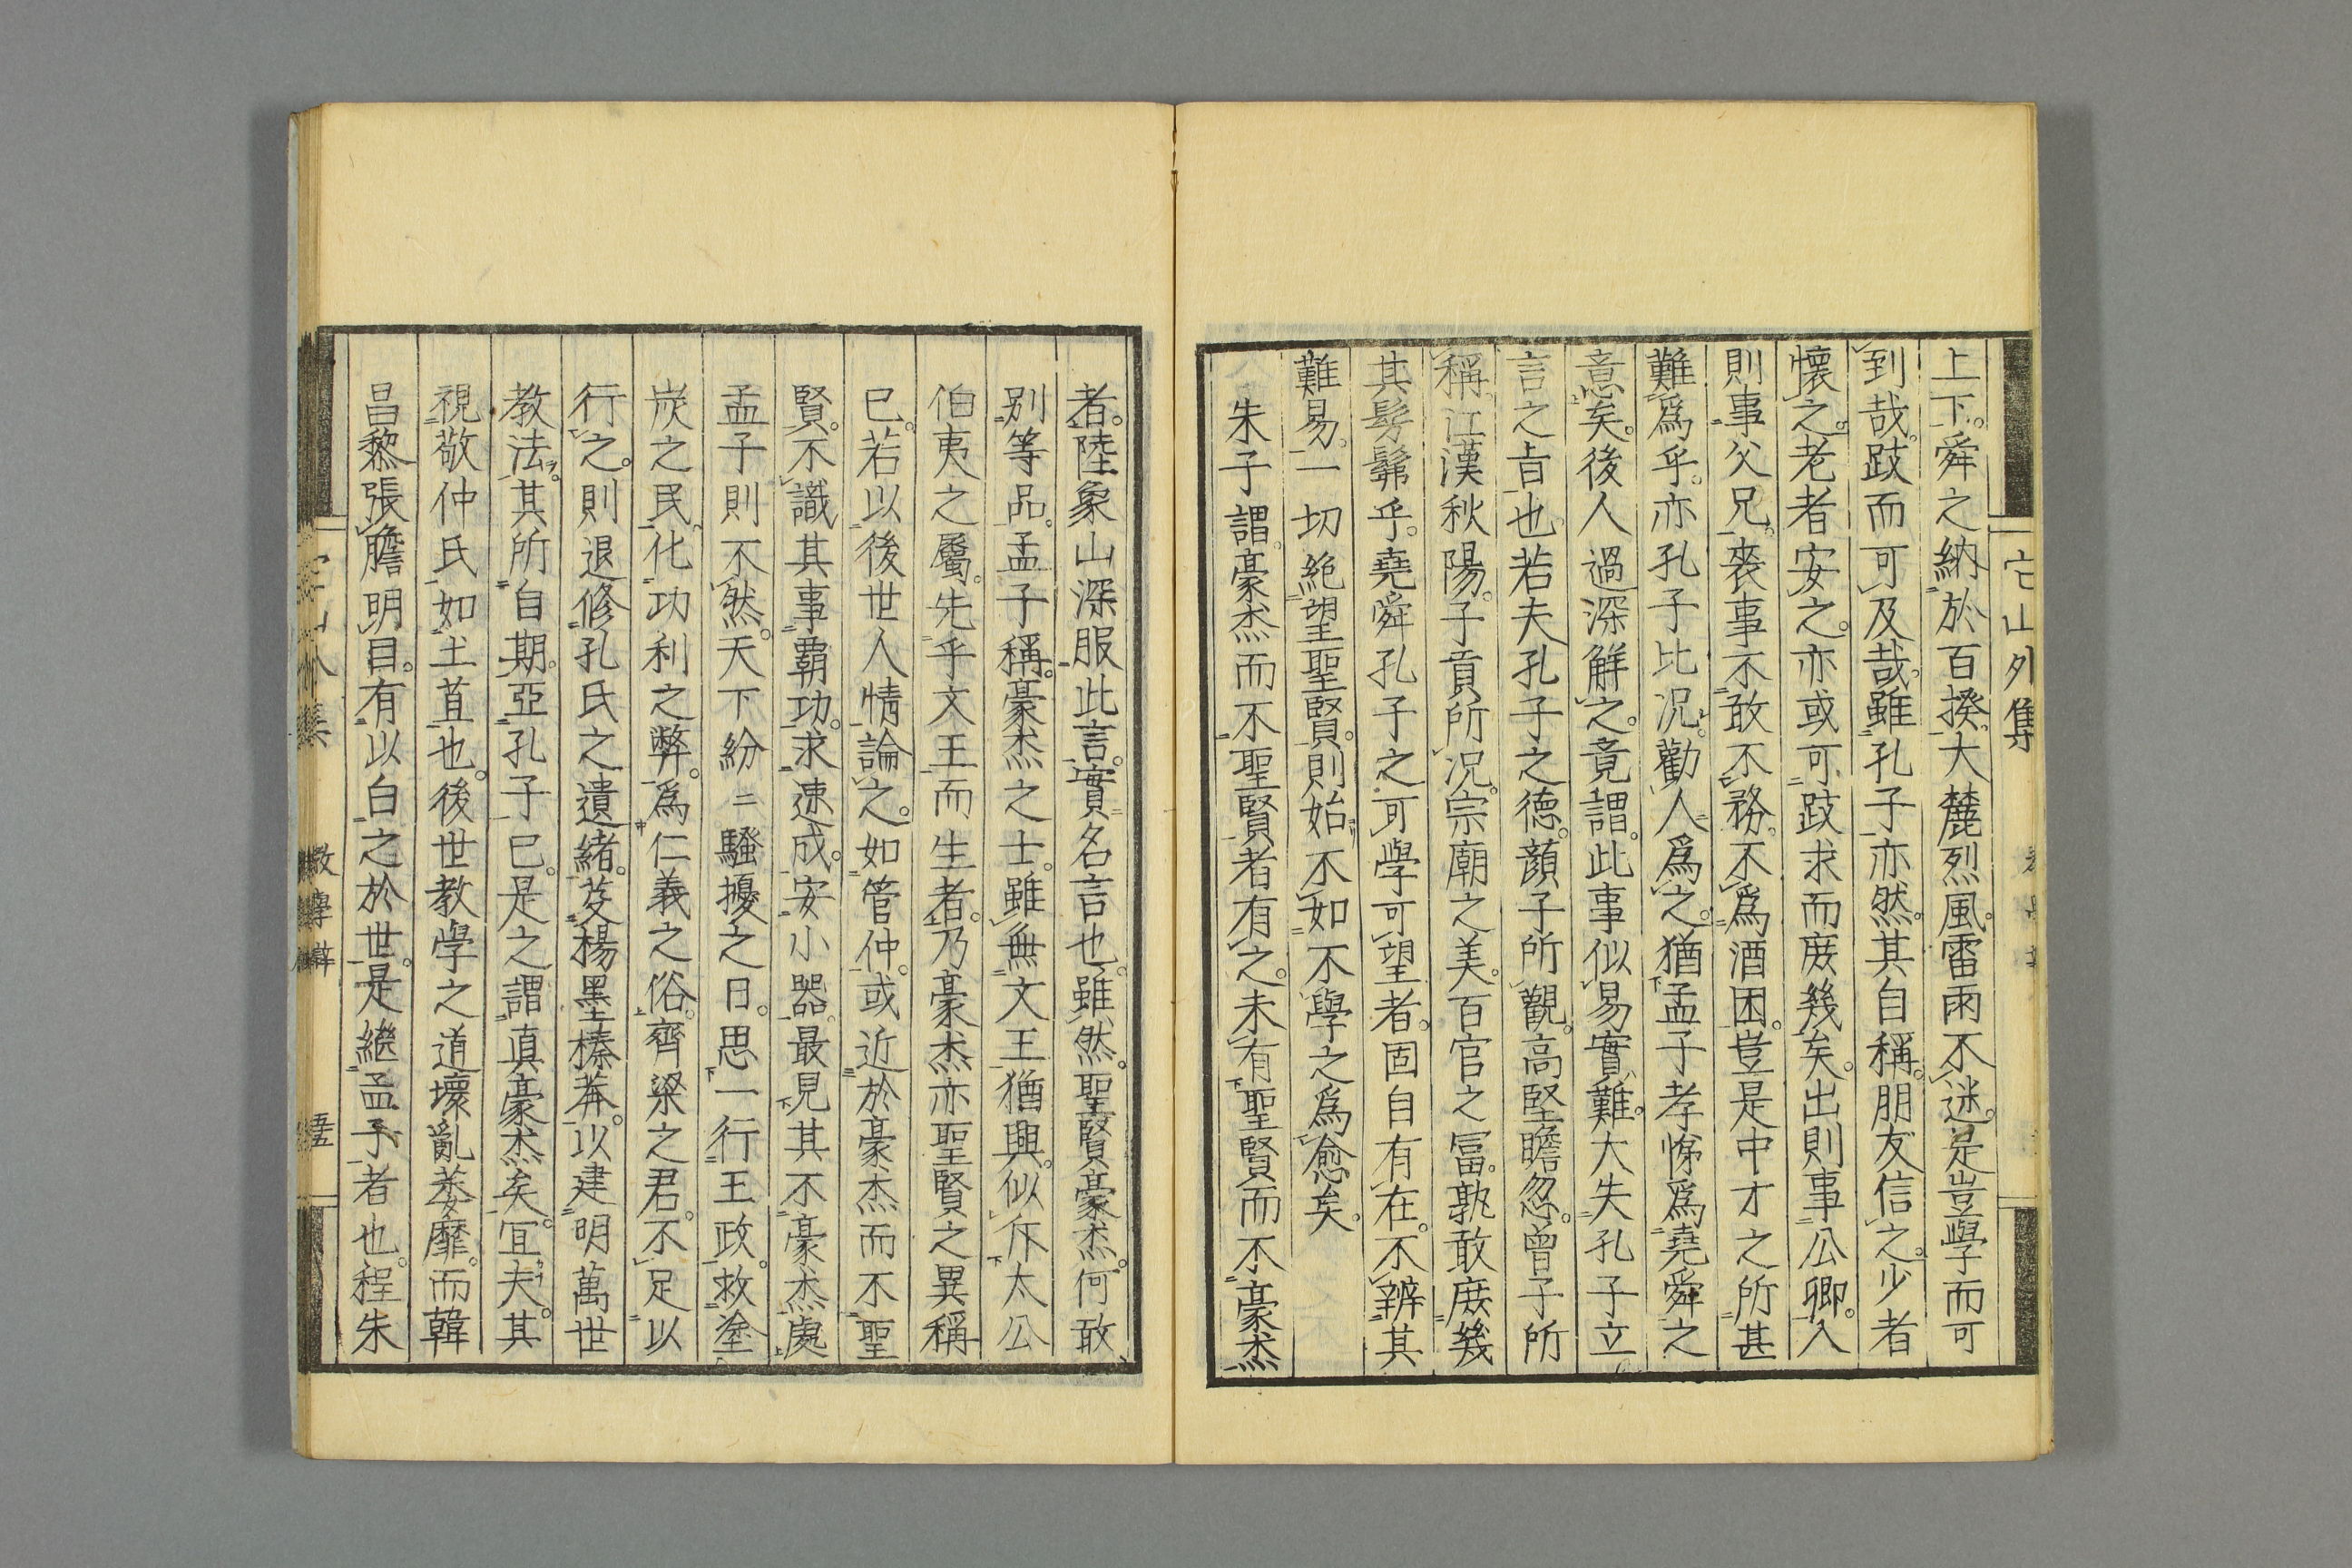 它山外集
上下。舜之納於百揆。大麓烈風。雷雨不迷。是豈學而可
到哉。跂而可及哉。雖孔子亦然。其自稱。朋友信之。少者
懷之。老者安之。亦或可跂求而庶幾矣。出則事公卿。入
則事父兄。喪事不敢不務。不爲酒困。豈是中才之所甚
難爲乎。亦孔子比况。勸人爲之。猶孟子孝悌爲堯舜之
意矣。後人過深解之。竟謂。此事似易實難。大失孔子立
言之旨也。若夫孔子之德。顔子所觀。高堅瞻忽。曾子所
稱。江漢秋陽。子貢所况。宗廟之美。百官之冨。孰敢庶幾
其髣髴乎。堯舜孔子之可學可望者。固自有在。不辨其
難易。一切絶望聖賢。則始不如不學之爲愈矣。
朱子謂。豪杰而不聖賢者有之。未有聖賢而不豪杰
者。陸象山深服此言。實名言也。雖然。聖賢豪杰。何敢
别等品。孟子稱。豪杰之士。雖無文王猶興。似斥太公
伯夷之屬。先乎文王而生者。乃豪杰亦聖賢之異稱
已。若以後世人情論之。如管仲。或近於豪杰而不聖
賢。不識其事霸功。求速成。安小器。最見其不豪杰處
孟子則不然。天下紛〻騷擾之日。思一行王政。救塗
炭之民。化功利之弊。爲仁義之俗。齊梁之君。不足以
行之。則退修孔氏之遺緒。芟楊墨榛莽。以建明萬世
教法。其所自期。亞孔子已。是之謂眞豪杰矣。冝夫。其
視敬仲氏如土苴也。後世教學之道壞亂萎靡。而韓
昌黎張膽明目。有以白之於世。是繼孟子者也。程朱
教學辨
五